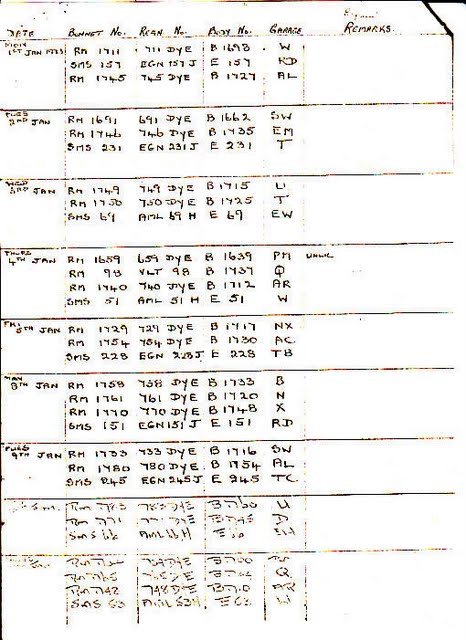 DATE BONNET NO. REGN. NO. BODY NO. GARAGE REMARKS
1ST JAN 1973 RM 1711 711 DYE B 1698 W
SMS 157 EGN 157 J E 157 RD
RM 1745 745 DYE B 1727 AL
TUES RM 1691 691 DYE B 1662 SW
2ND JAN RM 1746 746 DYE B 1735 EM
SMS 231 EGN 231 J E 231 T
WED
3RD JAN RM 1749 749 DYE B 1715 U
RM 1750 750 DYE B 1725 T
SMS 69 AML 69 H E 69 EW
THURS
4TH JAN RM 1659 659 DYE B 1639 PM
RM 98 VLT 98 B 1737 Q
RM 1740 740 DYE B 1712 AR
SMS 51 AML 51 H E 51 W
FRI
5TH JAN RM 1729 729 DYE B 1717 NX
RM 1754 754 DYE B 1730 AC
SMS 228 EGN 228 J E 228 TB
8TH JAN RM 1758 758 DYE B 1733 B
RM 1761 761 DYE B 1720 N
RM 1770 770 DYE B 1748 X
SMS 151 EGN 151 J E 151 RD
TUES
9TH JAN RM 1733 733 DYE B 1716 SW
RM 1780 780 DYE B 1754 AL
SMS 245 EGN 245 J E 245 TC
U
D
SMS 66 AML 66 H
Q
AR
SMS 63 AML 63 H E 63 W